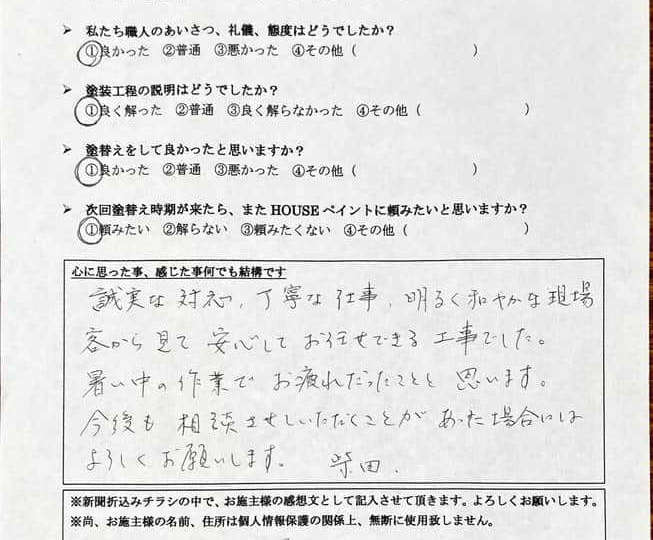 ➢ 私たち職人のあいさつ、礼儀、態度はどうでしたか?
①良かった ②普通 ③悪かった ④その他 ( )
➢ 塗装工程の説明はどうでしたか?
①良く解った ②普通 ③良く解らなかった ④その他 ( )
➢ 塗替えをして良かったと思いますか?
①良かった ②普通 ③悪かった ④その他 ( )
➢ 次回塗替え時期が来たら、また HOUSE ペイントに頼みたいと思いますか?
①頼みたい ②解らない ③頼みたくない ④その他 ( )
心に思った事、感じた事何でも結構です
誠実な対応、丁寧な仕事、明るく和やかな現場
客から見て安心してお任せできる工事でした。
暑い中の作業でお疲れだったことと思います。
今後も相談させていただくことがあった場合には
よろしくお願いします。 柴田.
※新聞折込みチラシの中で、お施主様の感想文として記入させて頂きます。よろしくお願いします。
※尚、お施主様の名前、住所は個人情報保護の関係上、無断に使用致しません。